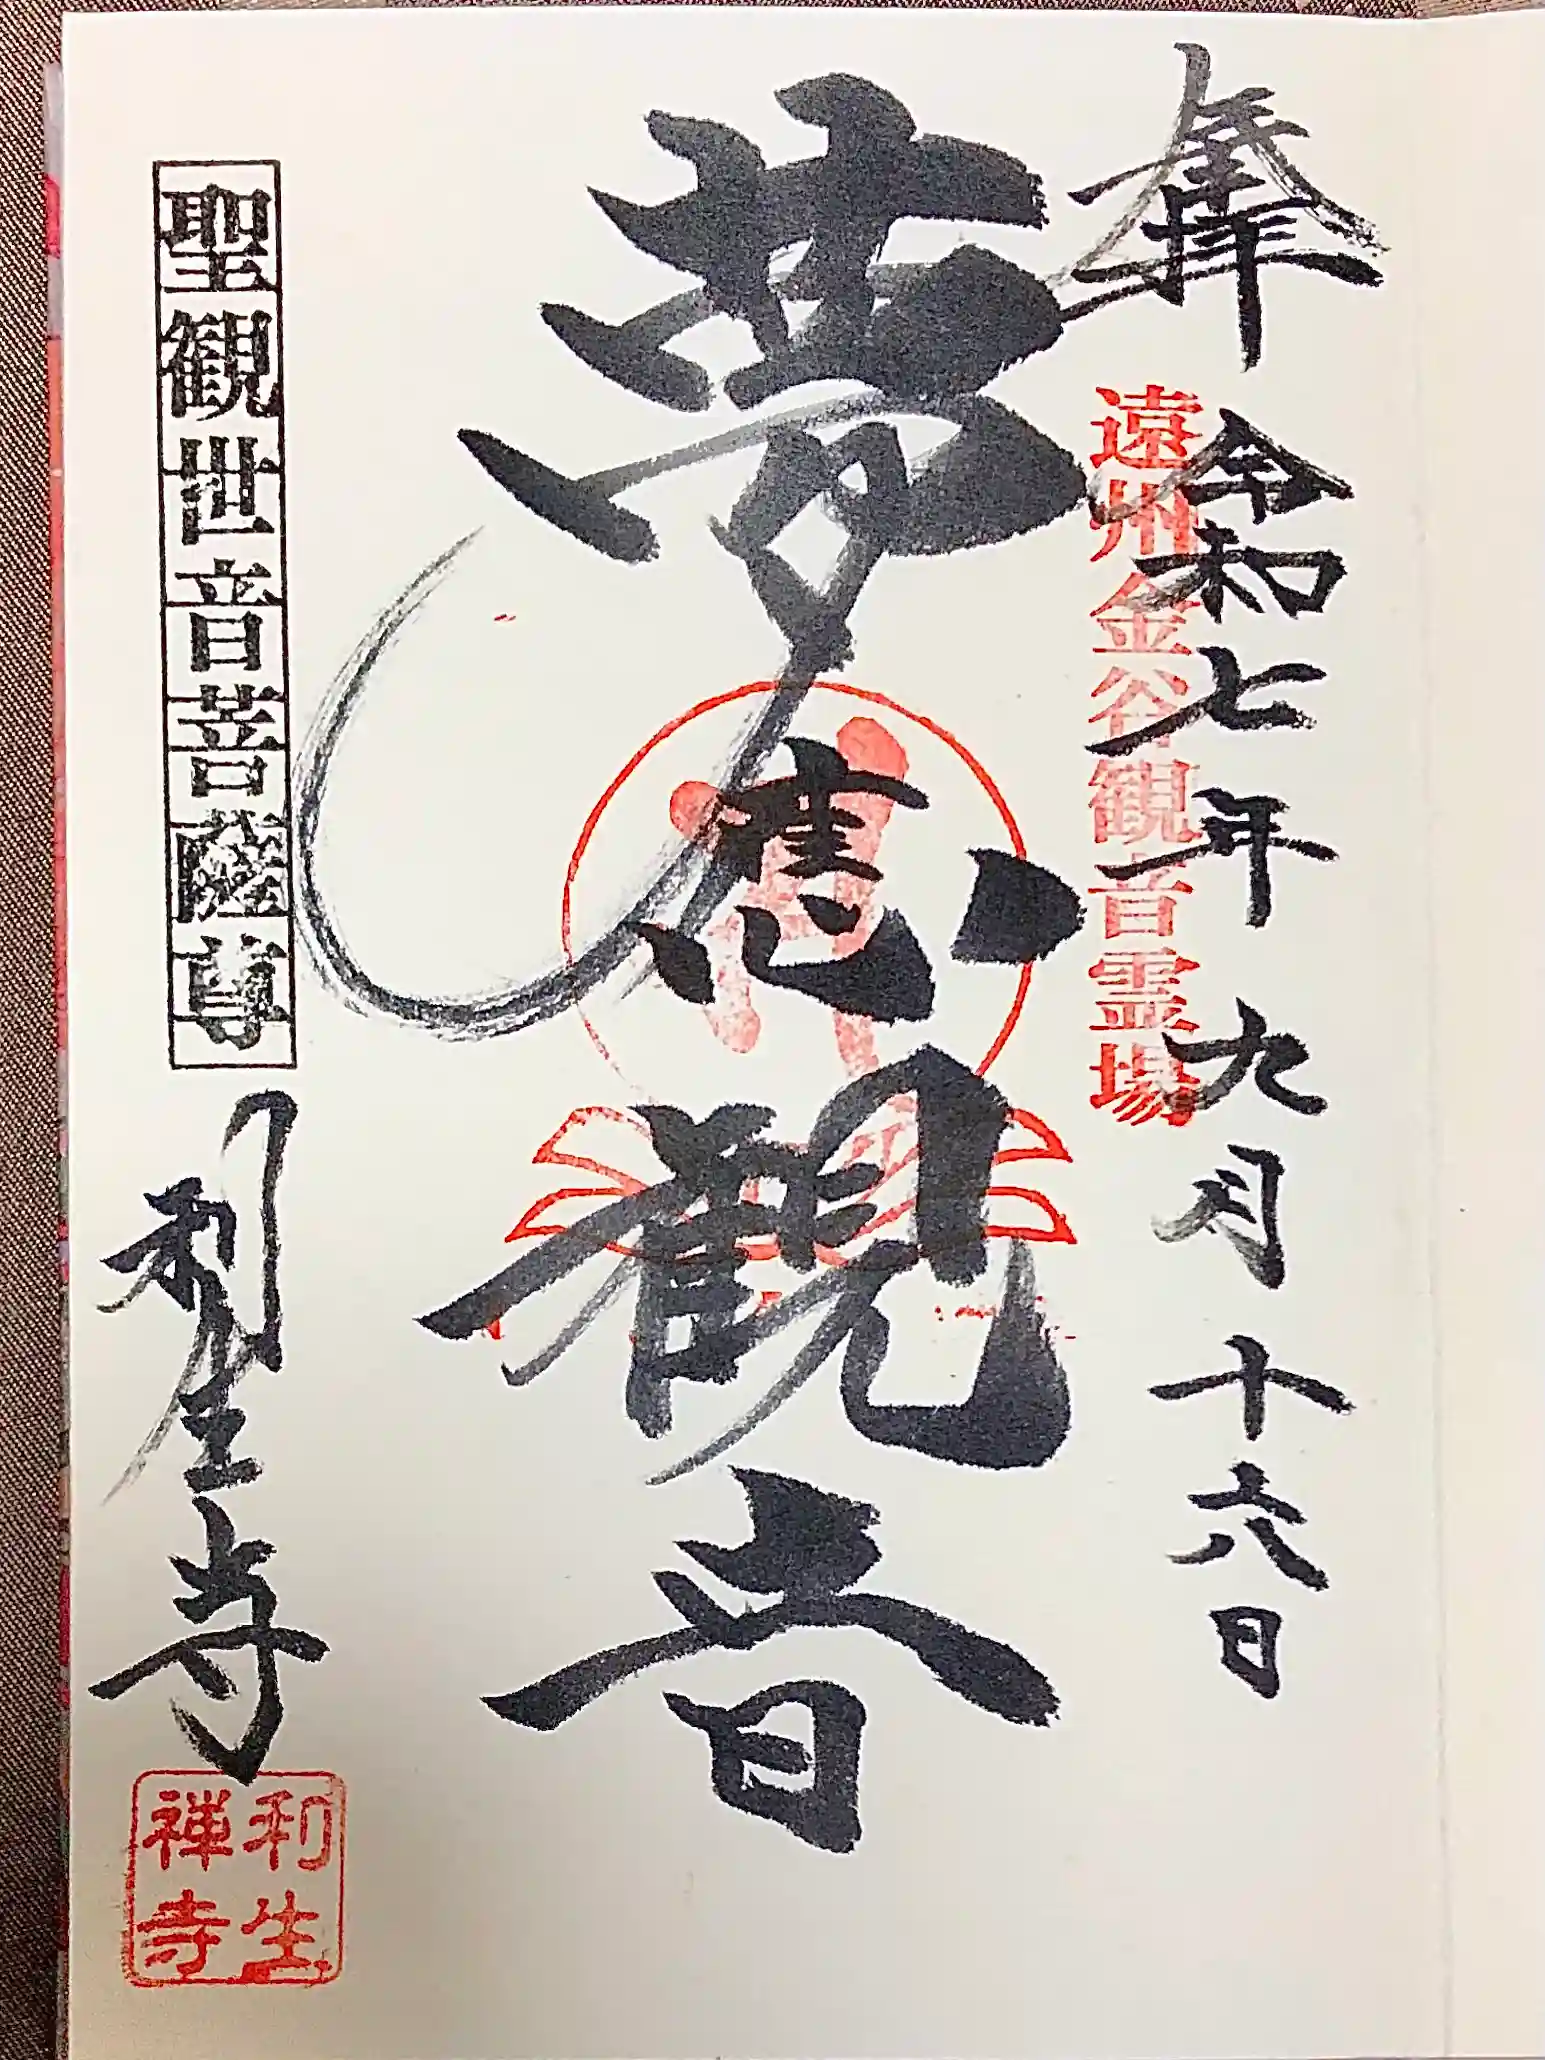 奉拝
令和七年九月十六日
遠州金谷観音霊場
夢應観音
聖観世音菩薩尊
利生寺
利生
禅寺